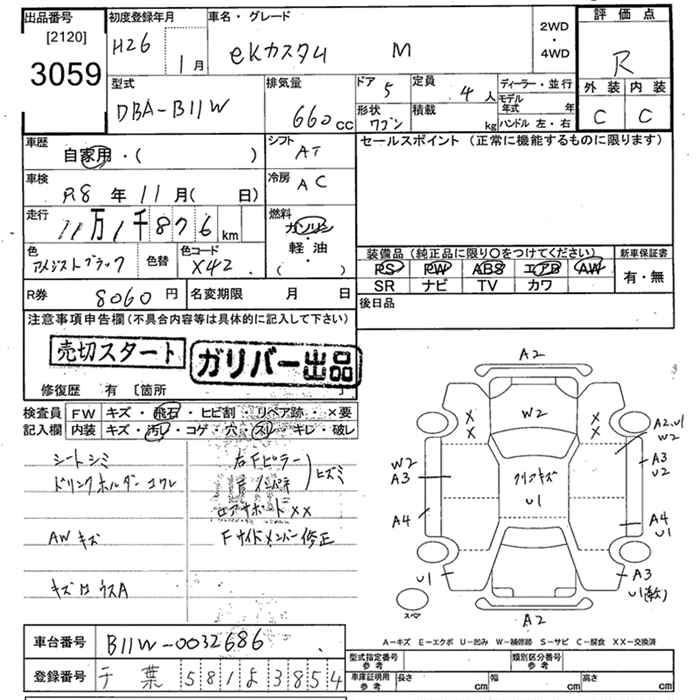 出品番号
[2120]
3059
初度登録年月
H26 1月
車名・グレード
eKカスタム M
2WD
・
4WD
評価点
R
外装 内装
C C
型式
DBA-B11W
排気量
660cc
ドア 5
定員 4人
形状 ワゴン
積載 kg
ディーラー・並行
モデル年式 年
ハンドル 左・右
車歴
自家用・( )
シフト
AT
セールスポイント (正常に機能するものに限ります)
車検
R8年11月( 日)
冷房
AC
走行
11万1千876km
燃料
ガソリン
軽・油
( ・ )
色
アメジストブラック
色替
色コード
X42
装備品(純正品に限り○をつけてください)
PS PW ABS エアB AW
SR ナビ TV カワ
新車保証書
有・無
R券 8060円
名変期限 月 日
後日品
注意事項申告欄(不具合内容等は具体的に記入して下さい)
売切スタート
ガリバー出品
修復歴 有 〔箇所 〕
検査員 FW キズ・飛石・ヒビ割・リペア跡・×要
記入欄 内装 キズ・汚レ・コゲ・穴・スレ・キレ・破レ
シートシミ
ドリンクホルダーコワレ
AWキズ
キズロウスA
右Fピラー
インパネ
ヒズミ
ロアサポートXX
Fサイドメンバー修正
A2
W2
X X
X X
A2.U1
W2
A3
U2
W2
A3
クリアキズ
U1
A4
A4
U1
U1
A3
U1
スペア
A2
A-キズ E-エクボ U-凹み W-補修跡 S-サビ C-腐食 XX-交換済
車台番号 B11W-0032686
登録番号 千葉 581よ3854
型式指定番号 参考
類別区分番号 参考
車庫証明用 参考
長さ cm 幅 cm 高さ cm